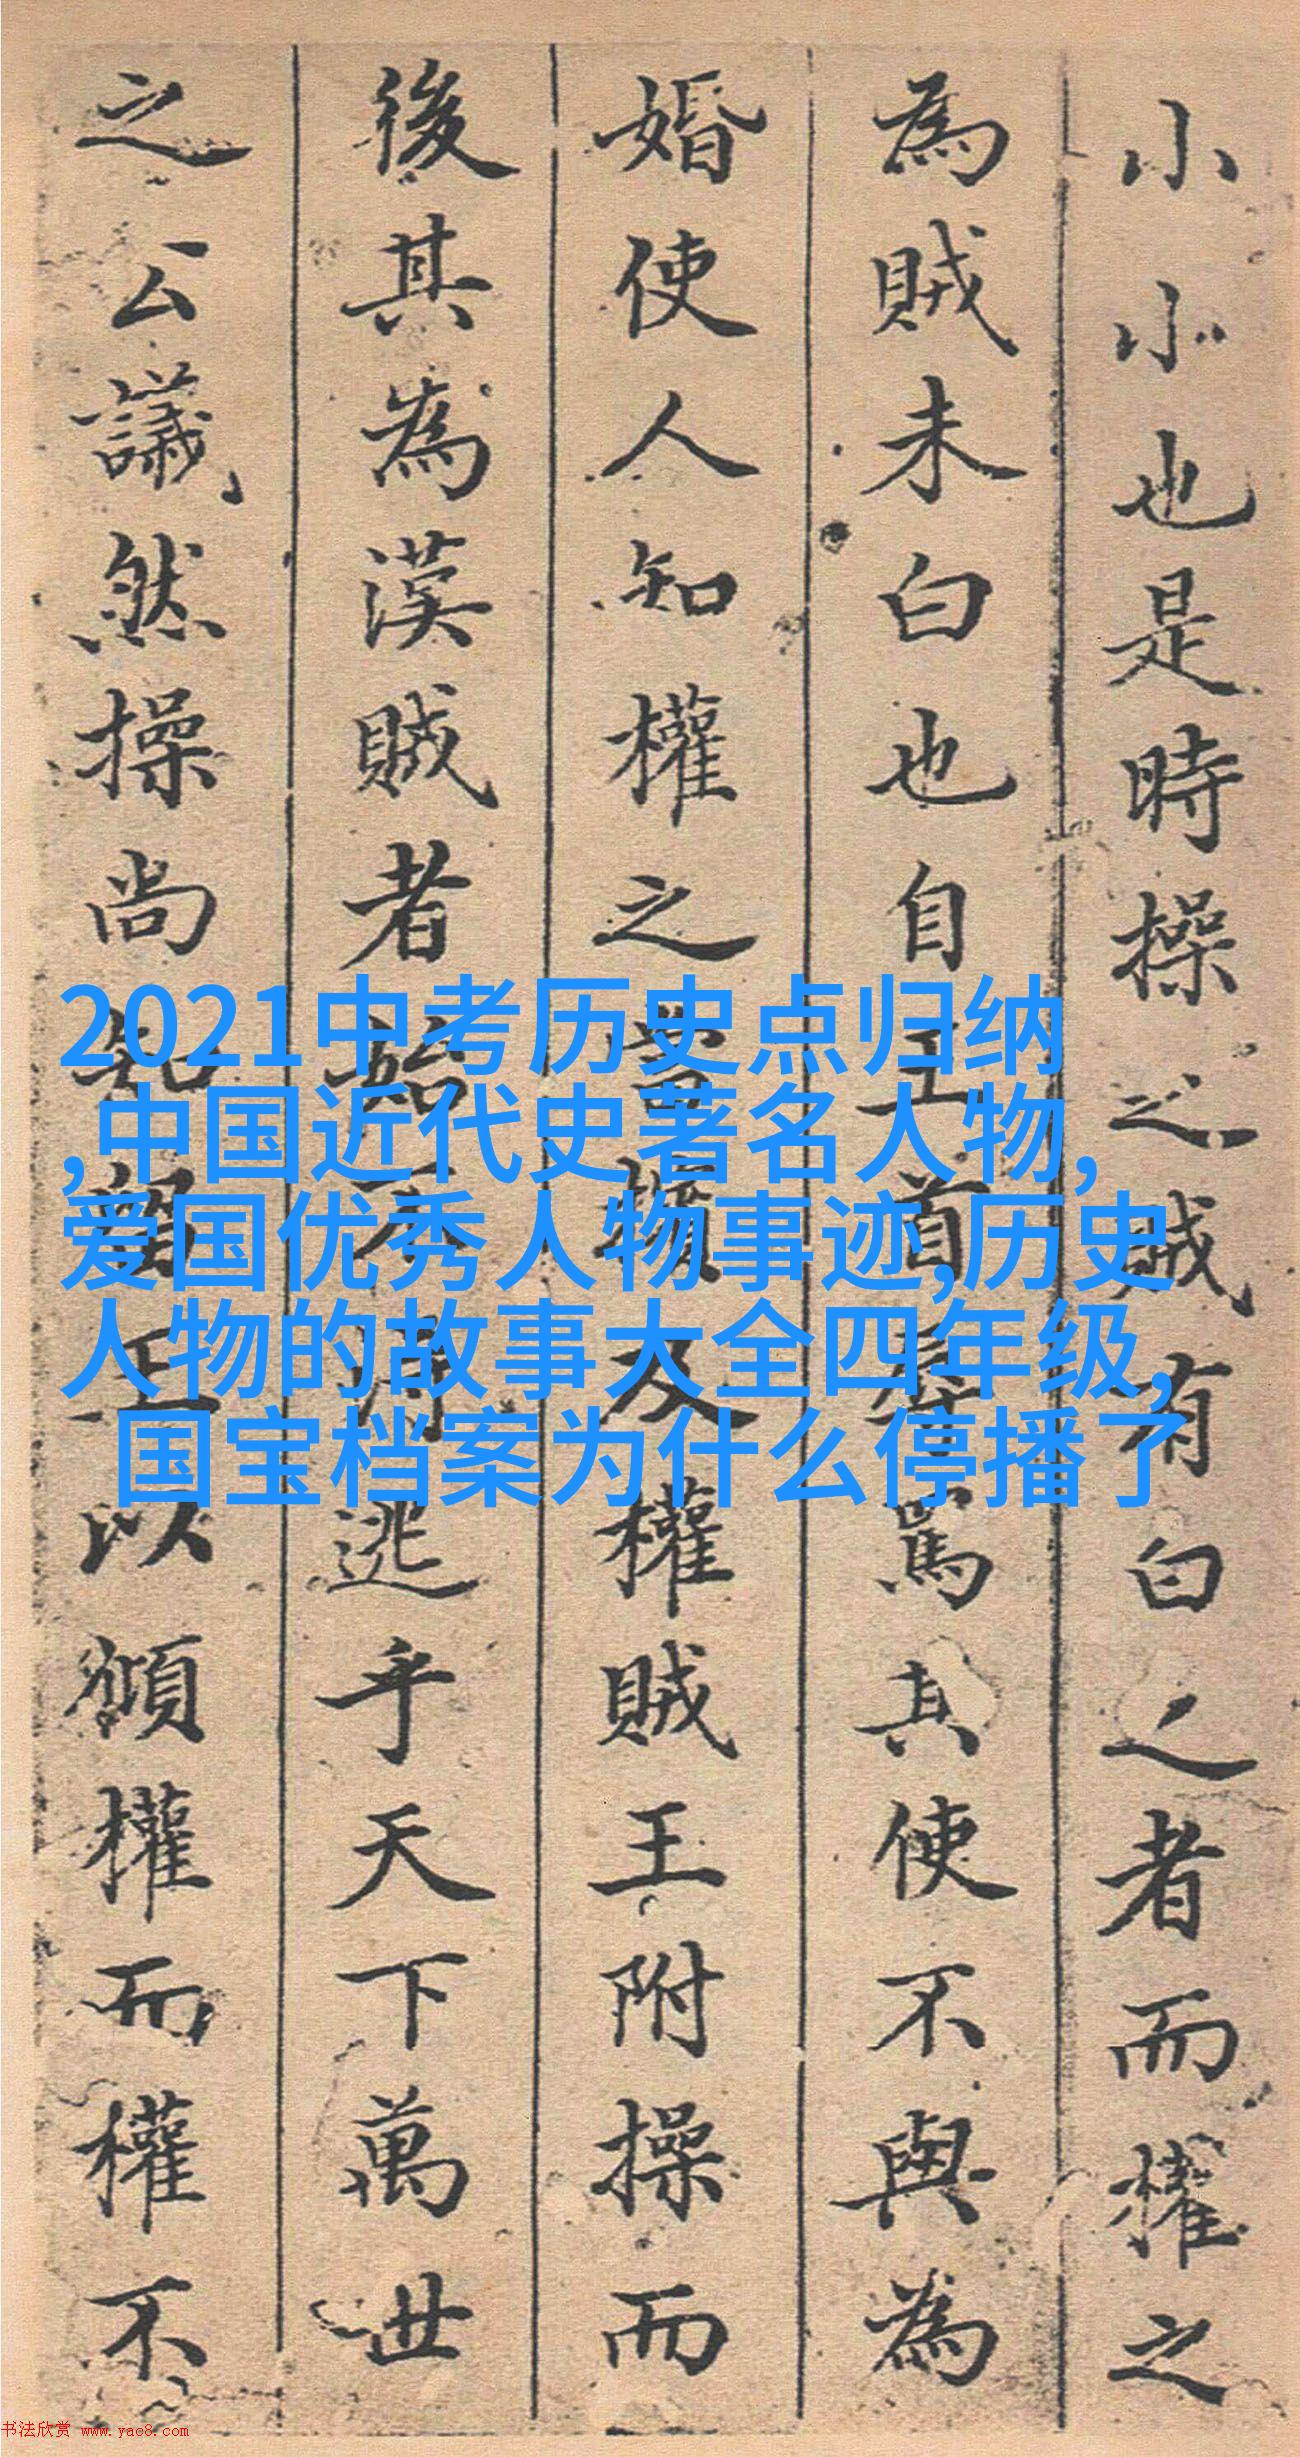 小小也是時操之賊有白之者而權之
為賊未白也自王首罵其使不與為
婚使人知權之當及權賊王附操而
後其為漢賊者始不得逃乎天下萬世
之公議然操尚知以權而權不
2021中考历史点归纳
,中国近代史著名人物,
爱国优秀人物事迹,历史
人物的故事大全四年级,
国宝档案为什么停播了
书法欣赏 www.yac8.com